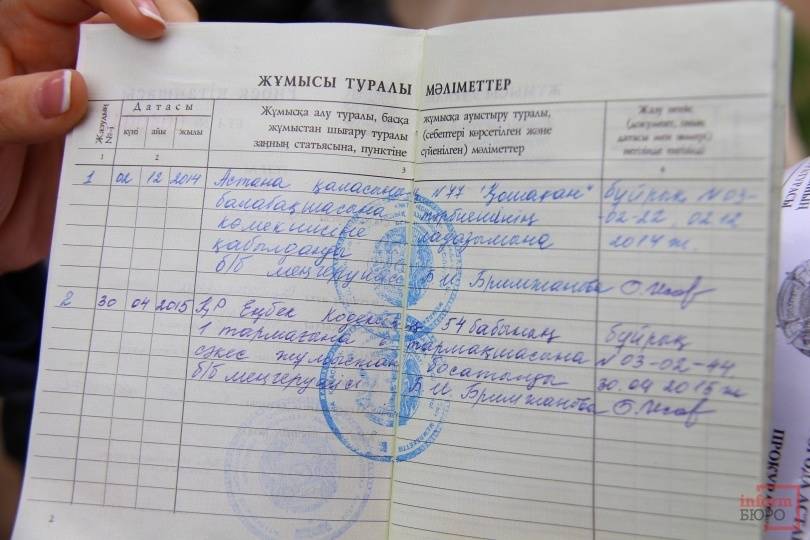 ЖҰМЫСЫ ТУРАЛЫ МӘЛІМЕТТЕР
Жазудың №-і
Датасы
күні айы жылы
Жұмысқа алу туралы, басқа жұмысқа ауыстыру туралы,
жұмыстан шығару туралы (себептері көрсетілген және
заңның статьясына, пунктіне сүйенілген) мәліметтер
1 2 3 4
1 02 12 2014 Астана қаласының №77 "Қошақан" бұйрық N 03-
балабақшасына тәрбиешінің 02-22, 02 12
көмекшісіне лауазымына 2014 ж.
қабылданды
б/б меңгерушісі Б И Бримжанова
2 30 04 2015 ҚР Еңбек Кодексінің 54 бабының бұйрық
1 тармағына 6 тармақшасына N 03-02-44
сәйкес жұмыстан босатылды 30.04 2015 ж
б/б меңгерушісі Б. И Бримжанова
2
inform
БЮРО